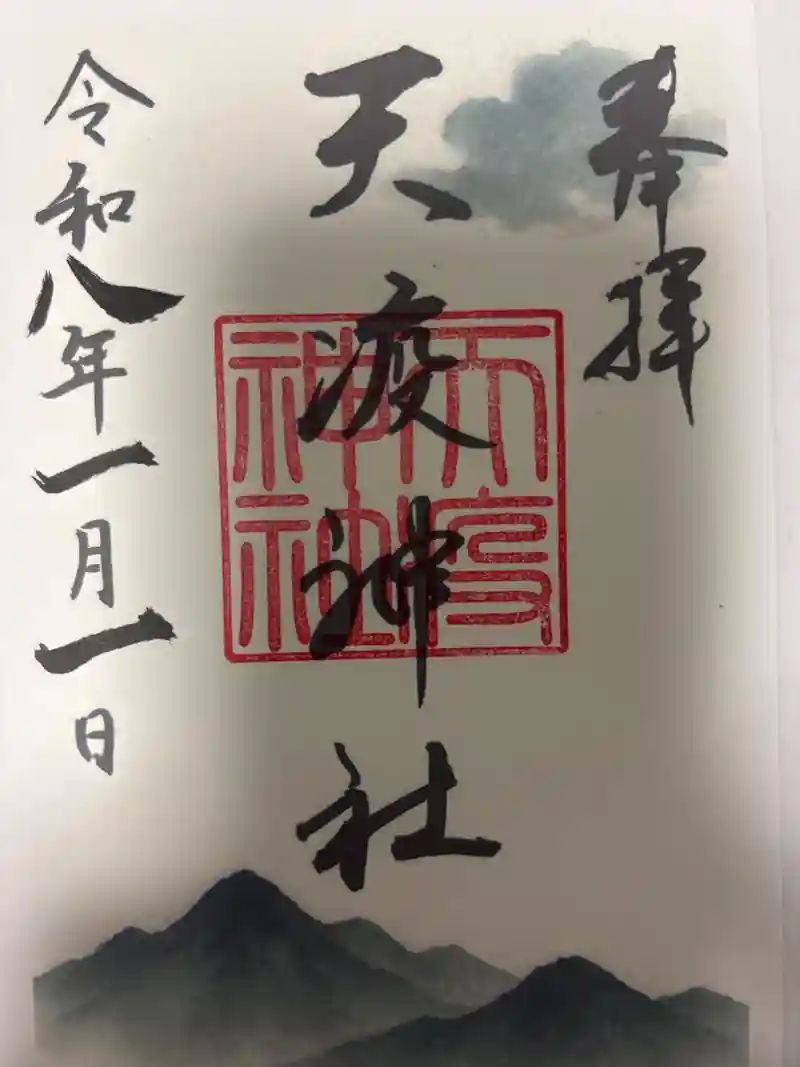 奉拝
天疫神社
天疫
神社
令和八年一月一日